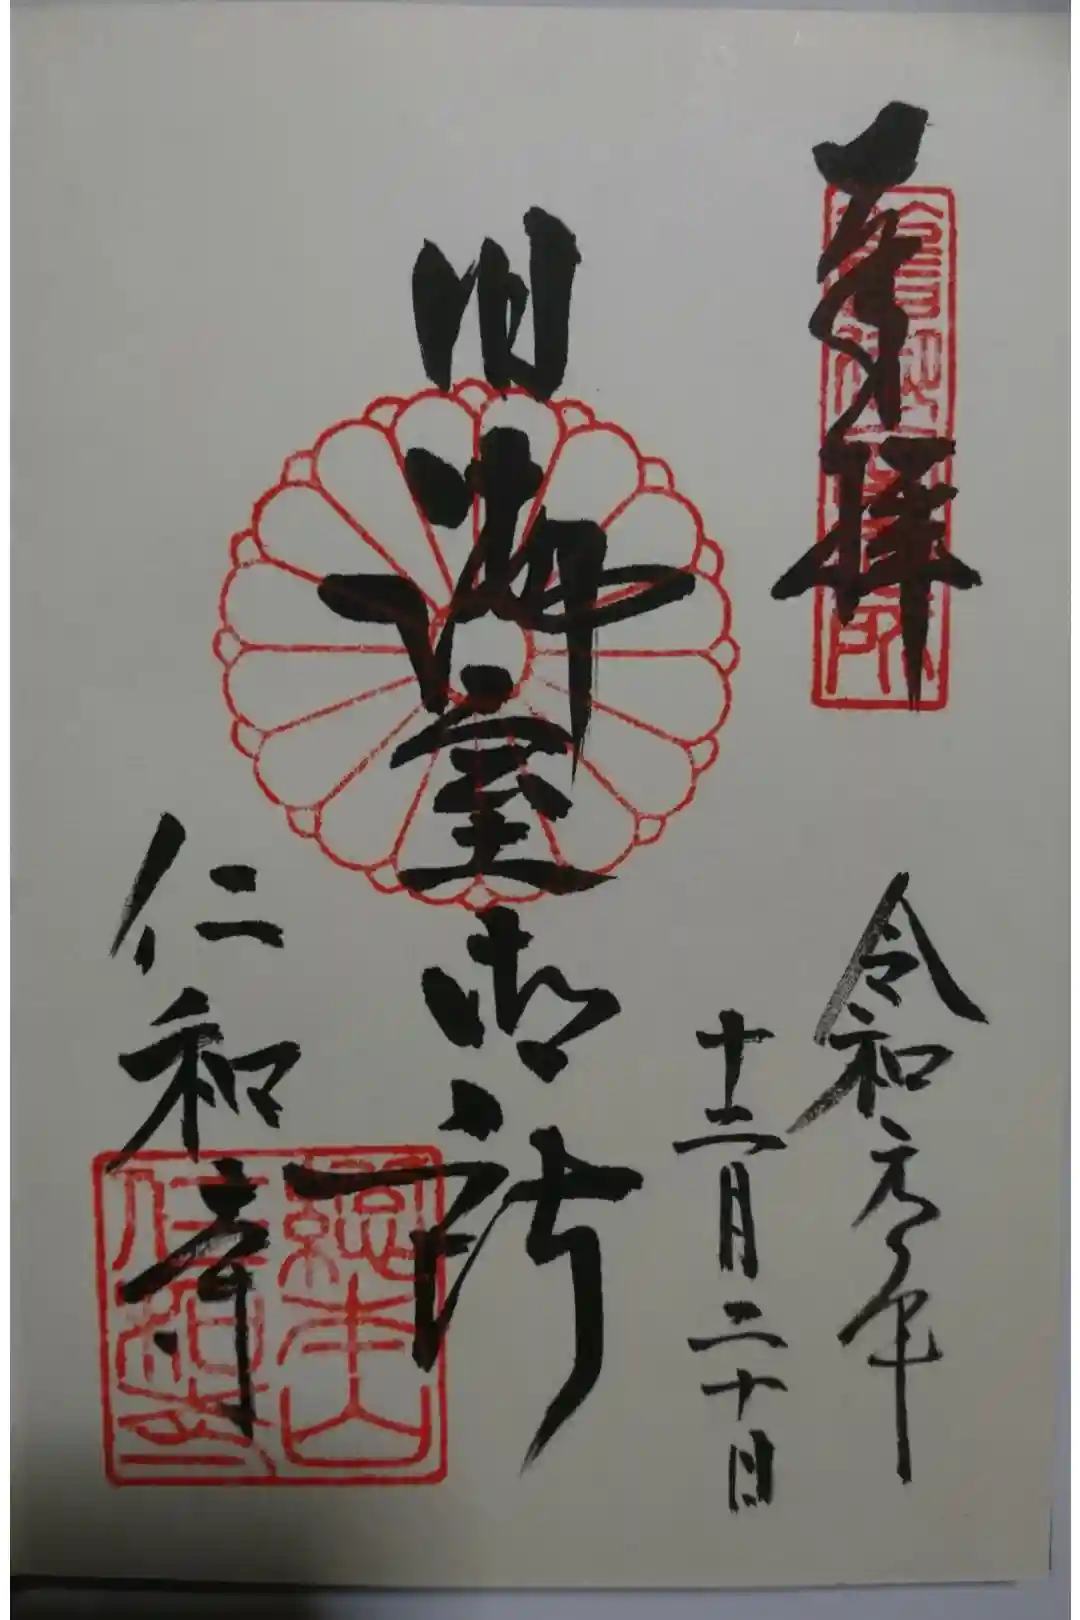 奉拝
令和元年
十二月二十日
旧御室御所
仁和寺
總本山